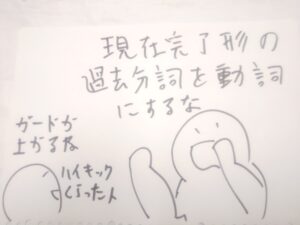 現在完了形の
過去分詞を動詞
にするな
ガードが
上がるな
ハイキック
くらった人